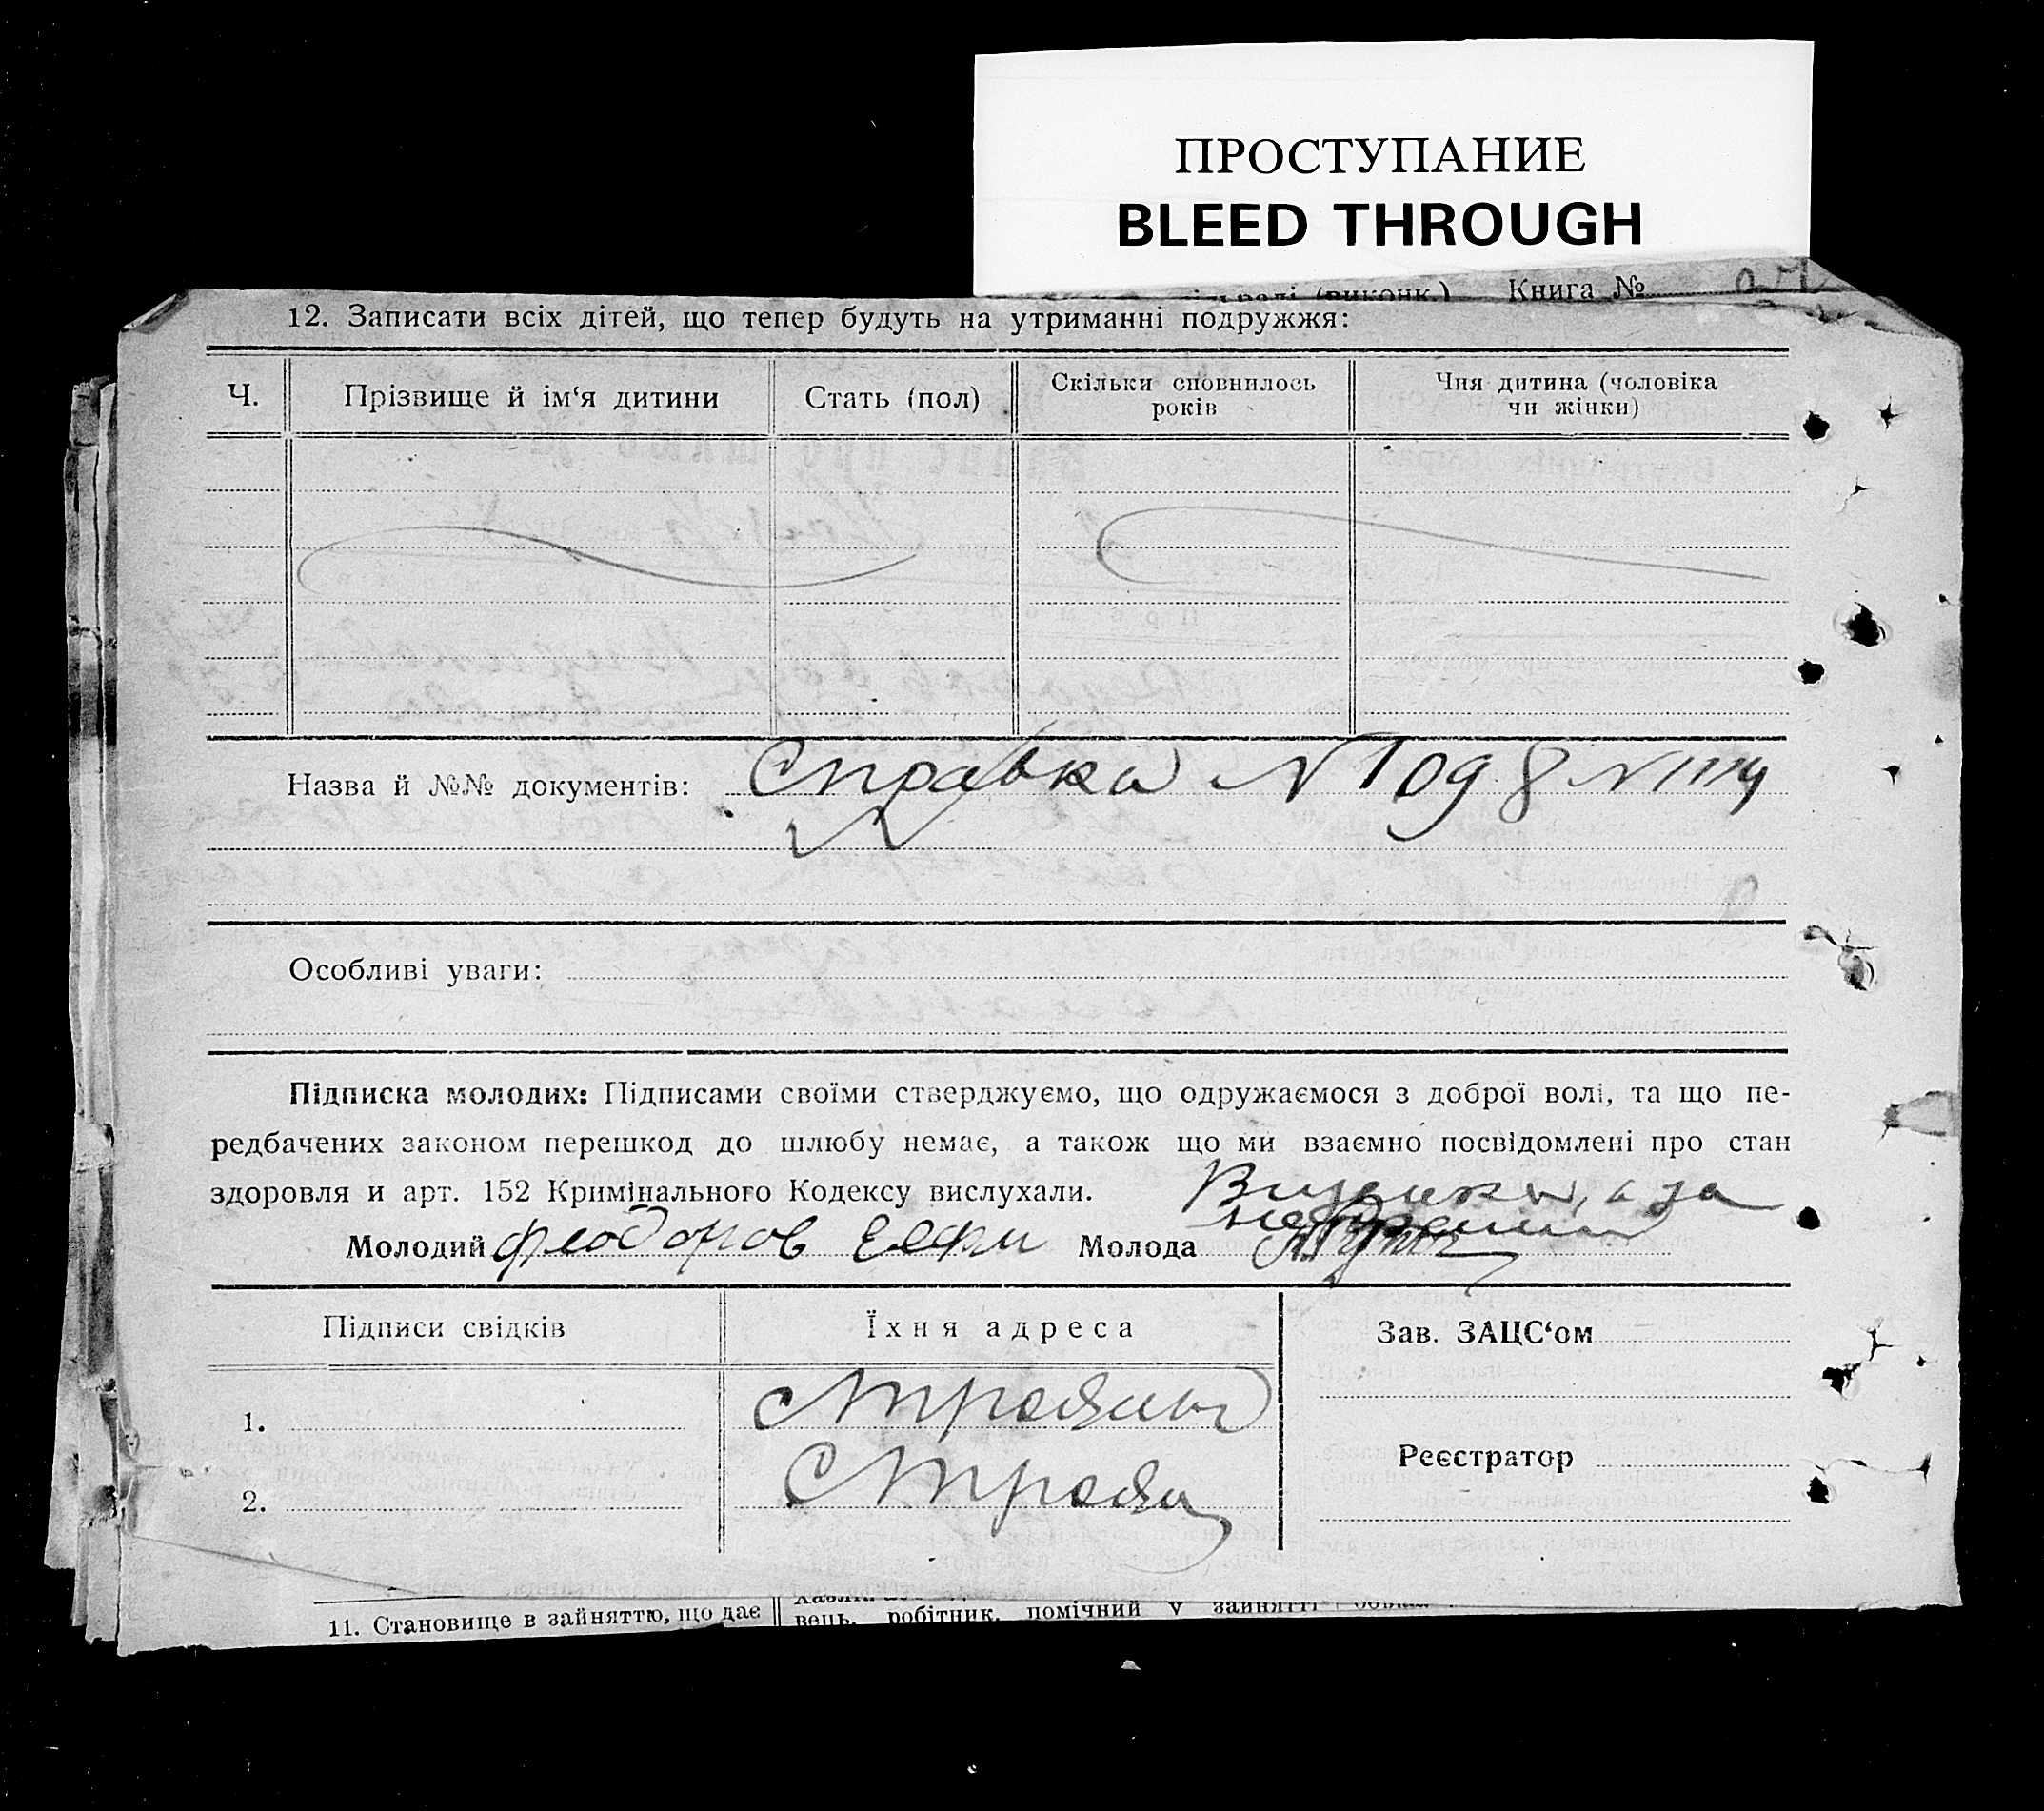 ПРОСТУПАНИЕ
BLEED THROUGH
(виконк.) Книга №
12. Записати всіх дітей, що тепер будуть на утриманні подружжя:
Ч.
Прізвище й ім‘я дитини
Стать (пол)
Скільки сповнилось
років
Чия дитина (чоловіка
чи жінки)
Назва й №№ документів: Справка №
Особливі уваги:
Підписка молодих: Підписами своїми стверджуємо, що одружаємося з доброї волі, та що пе-
редбачених законом перешкод до шлюбу немає, а також що ми взаємно посвідомлені про стан
здоровля и арт. 152 Кримінального Кодексу вислухали.
Молодий Феодоров Молода
Підписи свідків
Їхня адреса
Зав. ЗАЦС‘ом
1.
Реєстратор
2.
11. Становище в зайняттю, що дає
вець, робітник, помічний у зайнятті